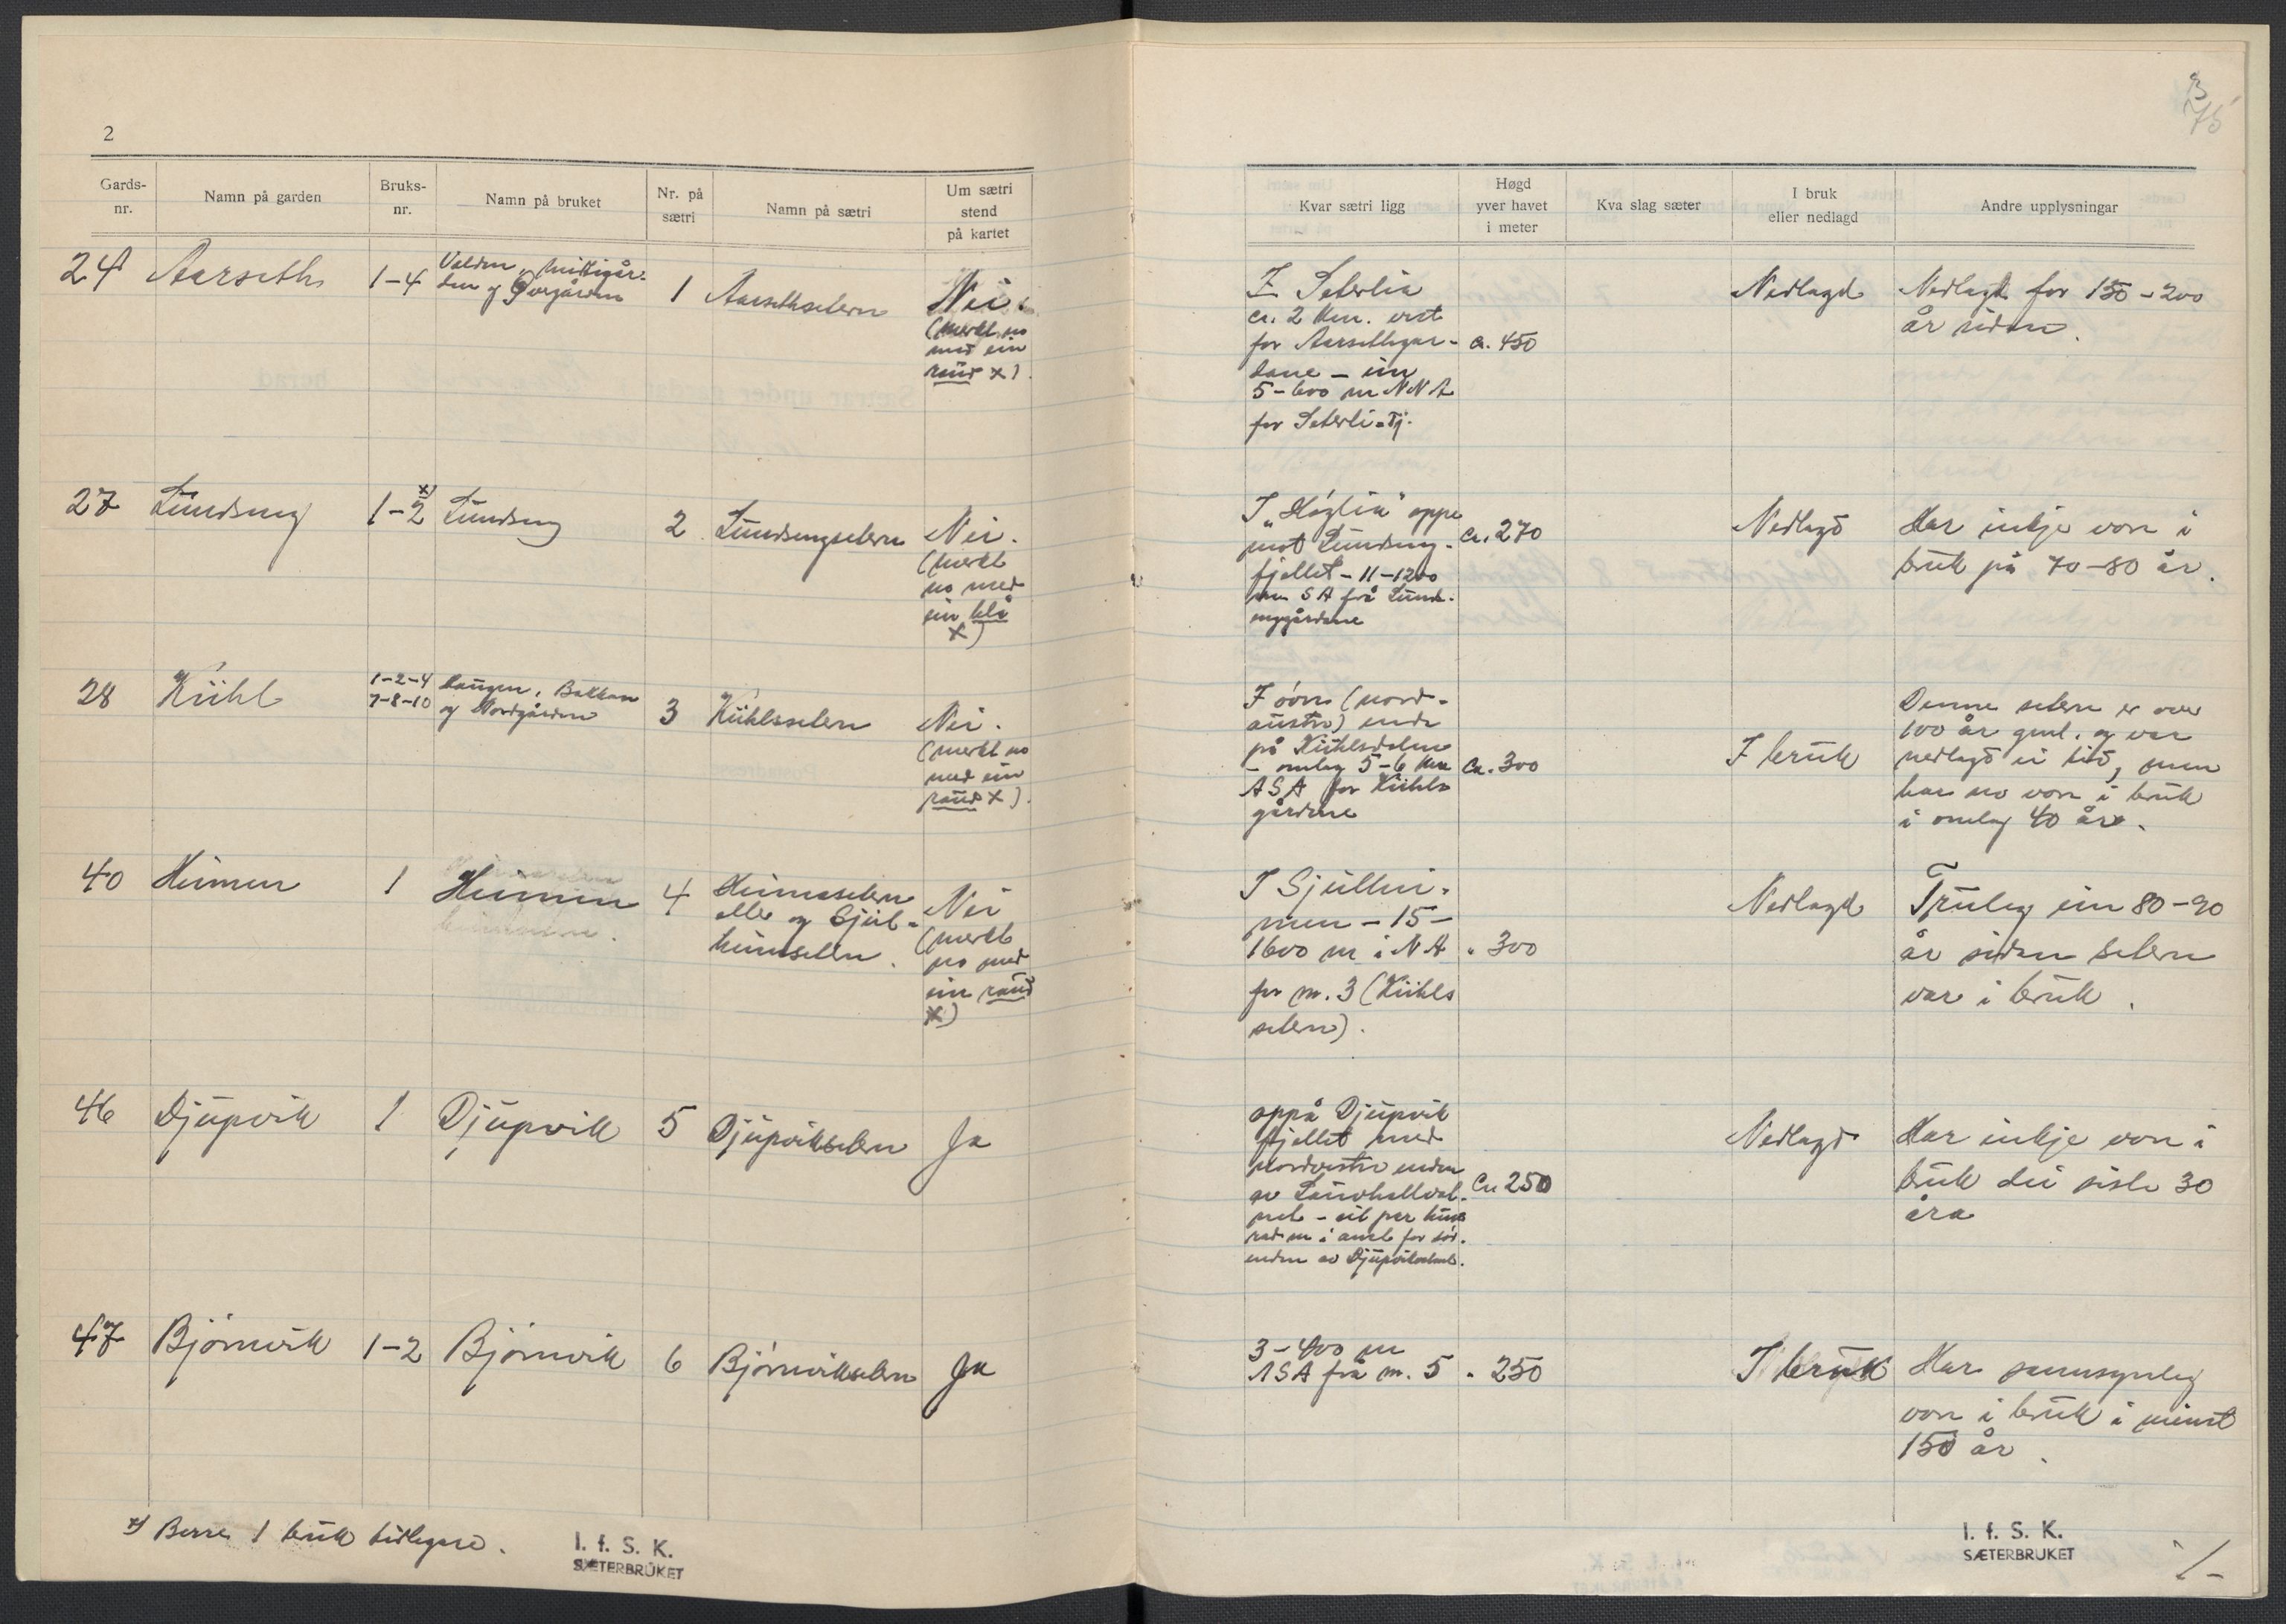 2
Gards-nr.
Namn på garden
Bruks-nr.
Namn på bruket
Nr. på sætri
Namn på sætri
Um sætri stend på kartet
24 Aarseth 1-4
og
1 Aarsethsetern
Nei.
(merkt no
med ein
raud x).
27 Lundseng 1-2 x) Lundseng 2 Lundsengsetern Nei.
(merkt
no med
ein blå
x)
28 Kühl 1-2-4
7-8-10
Haugen, Bakkan
og Nordgården
3 Kühlssetern Nei.
(merkt no
med ein
raud x).
40 Heimen 1 Heimen 4 Heimsetern
eller og
Nei
(merkt
no med
ein raud
x)
46 Djupvik 1 Djupvik 5 Djupviksetern Ja
47 Bjørnvik 1-2 Bjørnvik 6 Bjørnviksetern Ja
x) Berre 1 bruk tidlegare.
I. f. S. K.
SÆTERBRUKET
3
75
Kvar sætri ligg
Høgd yver havet i meter
Kva slag sæter
I bruk eller nedlagd
Andre upplysningar
I Seterlia
ca. 2 km. vest
for Aarsethgar-
dane - um
5-600 m NNA
for Seterli-tj.
ca. 450
Nedlagd
Nedlagd for 150-200
år sidan.
I "Høglia" oppe
mot Lundseng-
fjellet - 11-1200
m SA frå Lunds-
enggårdane
ca. 270
Nedlagd
Har inkje vore i
bruk på 70-80 år.
I øvre (nord-
austre) ende
på Kühlsdalen
- omlag 5-6 km
ASA for Kühls-
gårdane
ca. 300
I bruk
Denne setern er over
100 år gml. og var
nedlagd ei tid, men
har no vore i bruk
i omlag 40 år.
I
- 15-
1600 m i NA
for nr. 3 (Kühls
setern).
" 300
Nedlagd
Truleg um 80-90
år sidan setern
var i bruk.
oppå Djupvik
fjellet med
nordvestre enden
av
- eit par hund
rad m i aust for sør-
enden av
Ca 250
Nedlagd
Har inkje vore i
bruk dei siste 30
åra
3-400 m
ASA frå nr. 5
" 250
I bruk
Har sannsynleg
vore i bruk i minst
150 år.
I. f. S. K.
SÆTERBRUKET